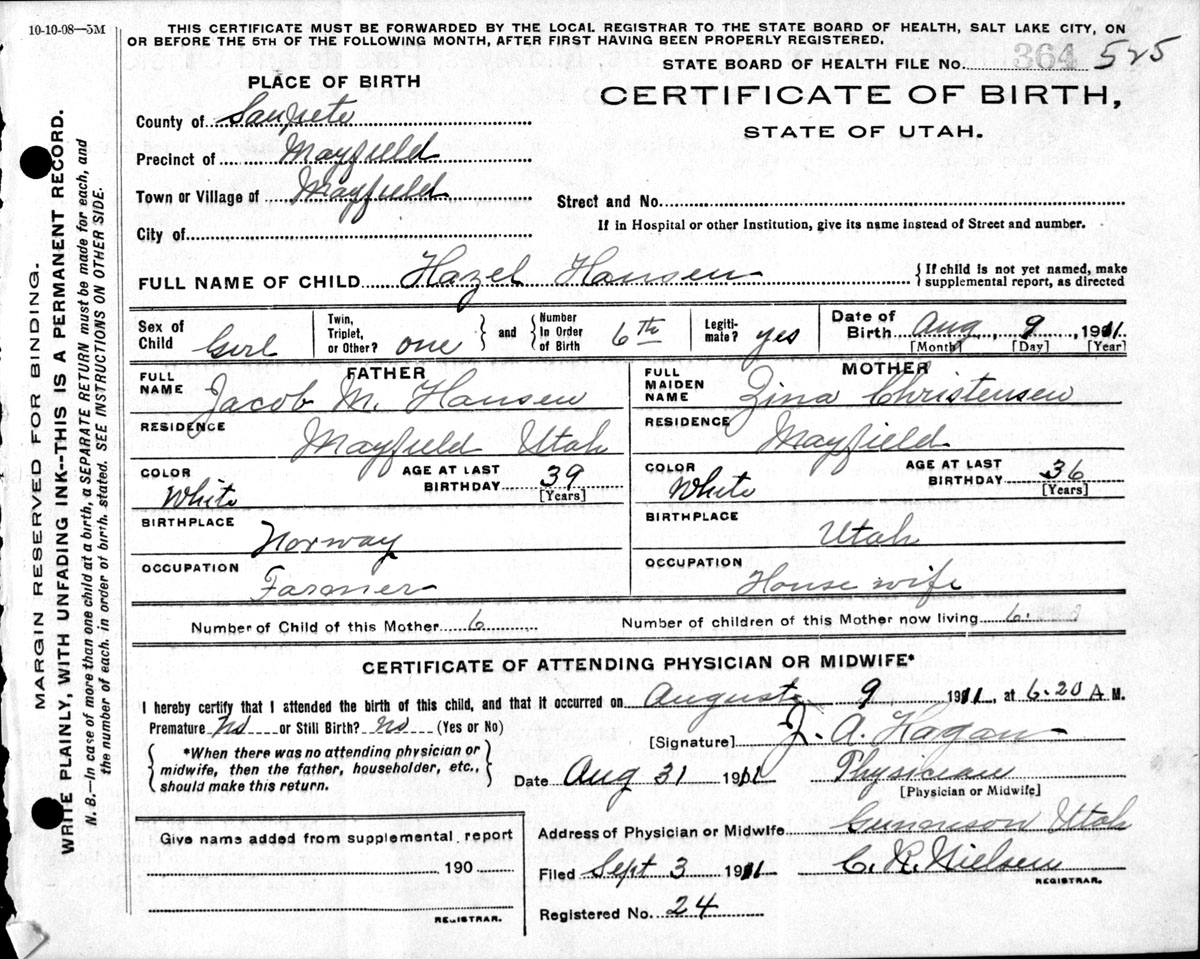 10-10-08—5M
THIS CERTIFICATE MUST BE FORWARDED BY THE LOCAL REGISTRAR TO THE STATE BOARD OF HEALTH, SALT LAKE CITY, ON
OR BEFORE THE 5TH OF THE FOLLOWING MONTH, AFTER FIRST HAVING BEEN PROPERLY REGISTERED.
STATE BOARD OF HEALTH FILE No. 364 525
PLACE OF BIRTH
CERTIFICATE OF BIRTH,
STATE OF UTAH.
County of Sanpete
Precinct of Mayfield
Town or Village of Mayfield
Street and No.
City of
If in Hospital or other Institution, give its name instead of Street and number.
FULL NAME OF CHILD Hazel Hansen { If child is not yet named, make
supplemental report, as directed
Sex of Child Girl
Twin, Triplet, or Other? one } and { Number In Order of Birth 6th
Legitimate? yes
Date of Birth Aug 9, 1911.
[Month] [Day] [Year]
FATHER
FULL NAME Jacob M. Hansen
RESIDENCE Mayfield Utah
COLOR White AGE AT LAST BIRTHDAY 39 [Years]
BIRTHPLACE Norway
OCCUPATION Farmer
MOTHER
FULL MAIDEN NAME Zina Christensen
RESIDENCE Mayfield
COLOR White AGE AT LAST BIRTHDAY 36 [Years]
BIRTHPLACE Utah
OCCUPATION House wife
Number of Child of this Mother 6 Number of children of this Mother now living 6.
CERTIFICATE OF ATTENDING PHYSICIAN OR MIDWIFE*
I hereby certify that I attended the birth of this child, and that it occurred on August 9 1911, at 6.20 A M.
Premature No or Still Birth? No (Yes or No)
{ *When there was no attending physician or
midwife, then the father, householder, etc.,
should make this return. }
[Signature] J. A. Hagan
Date Aug 31 1911 Physician
[Physician or Midwife]
Give name added from supplemental report
190
REGISTRAR.
Address of Physician or Midwife Gunnison Utah
Filed Sept 3 1911 C. R. Nielsen
REGISTRAR.
Registered No. 24
MARGIN RESERVED FOR BINDING.
WRITE PLAINLY, WITH UNFADING INK--THIS IS A PERMANENT RECORD.
N. B.—In case of more than one child at a birth, a SEPARATE RETURN must be made for each, and
the number of each, in order of birth, stated. SEE INSTRUCTIONS ON OTHER SIDE.